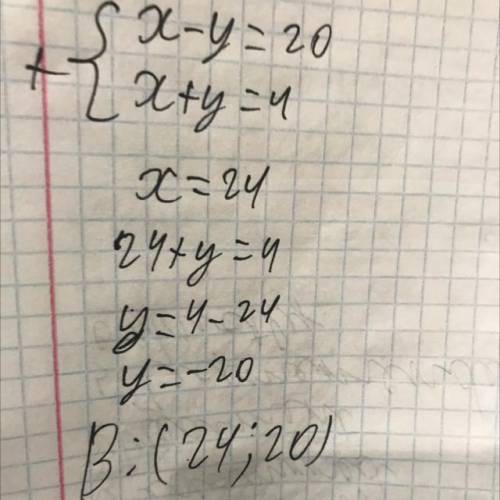 + { x-y=20
x+y=4
x=24
24+y=4
y=4-24
y=-20
В:(24;20)